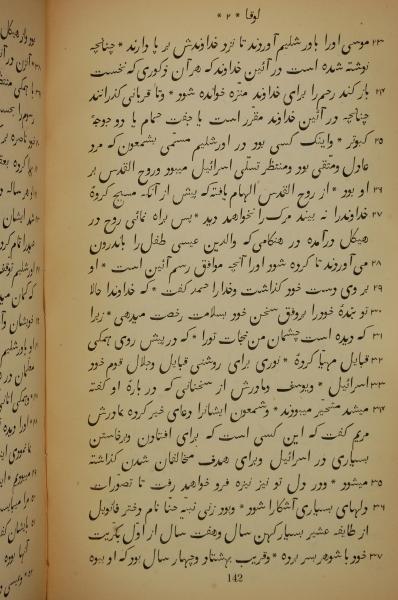 لوقا * ۲ *
۲۳ موسی اورا باورشلیم آوردند تا نزد خداوندش بر پا دارند * چنانچه
نوشته شده است در آئین خداوند که هر آن ذکوری که نخست
۲۴ باز کند رحم را برای خداوند منزه خوانده شود * وتا قربانی گذرانند
چنانچه در آئین خداوند مقرر است یا جفت حمام یا دو جوجهٔ
۲۵ کبوتر * واینک کسی بود در اورشلیم مسمّی بشمعون که مرد
عادل ومتقی بود ومنتظر تسلی اسرائیل میبود وروح القدس بر
۲۶ او بود * از روح القدس الهام یافته که پیش از آنکه مسیح کردهٔ
۲۷ خداوندرا نه بیند مرک را نخواهد دید * پس براه نمائی روح در
هیکل درآمده در هنگامی که والدین عیسی طفل را باندرون
۲۸ می آوردند تا کرده شود اورا آنچه موافق رسم آئین است * او
۲۹ بر روی دست خود گذاشت وخدارا حمد گفت * که خداوندا حالا
۳۰ تو بندهٔ خودرا بروفق سخن خود بسلامت رخصت میدهی * زیرا
۳۱ که دیده است چشمان من نجات تورا * که در پیش روی همگی
۳۲ قبایل مهیّا کردهٔ * نوری برای روشنی قبایل وجلال قوم خود
۳۳ اسرائیل * ویوسف ومادرش از سخنانی که در بارهٔ او گفته
۳۴ میشد متحیر میبودند * وشمعون ایشانرا دعای خیر کرده بمادرش
مریم گفت که این کسی است که برای افتادن وبرخاستن
بسیاری در اسرائیل وبرای هدف مخالفان شدن گذاشته
۳۵ میشود * ودر دل تو نیز نیزه فرو خواهد رفت تا تصورات
۳۶ دلهای بسیاری آشکارا شود * وبود زنی نبیّه حنا نام دختر فانوئل
از طایفه عشیر بسیار کهن سال وهفت سال از اوّل بکریت
۳۷ خود با شوهر بسر برده * وقریب بهشتاد وچهار سال بود که او بیوه
142